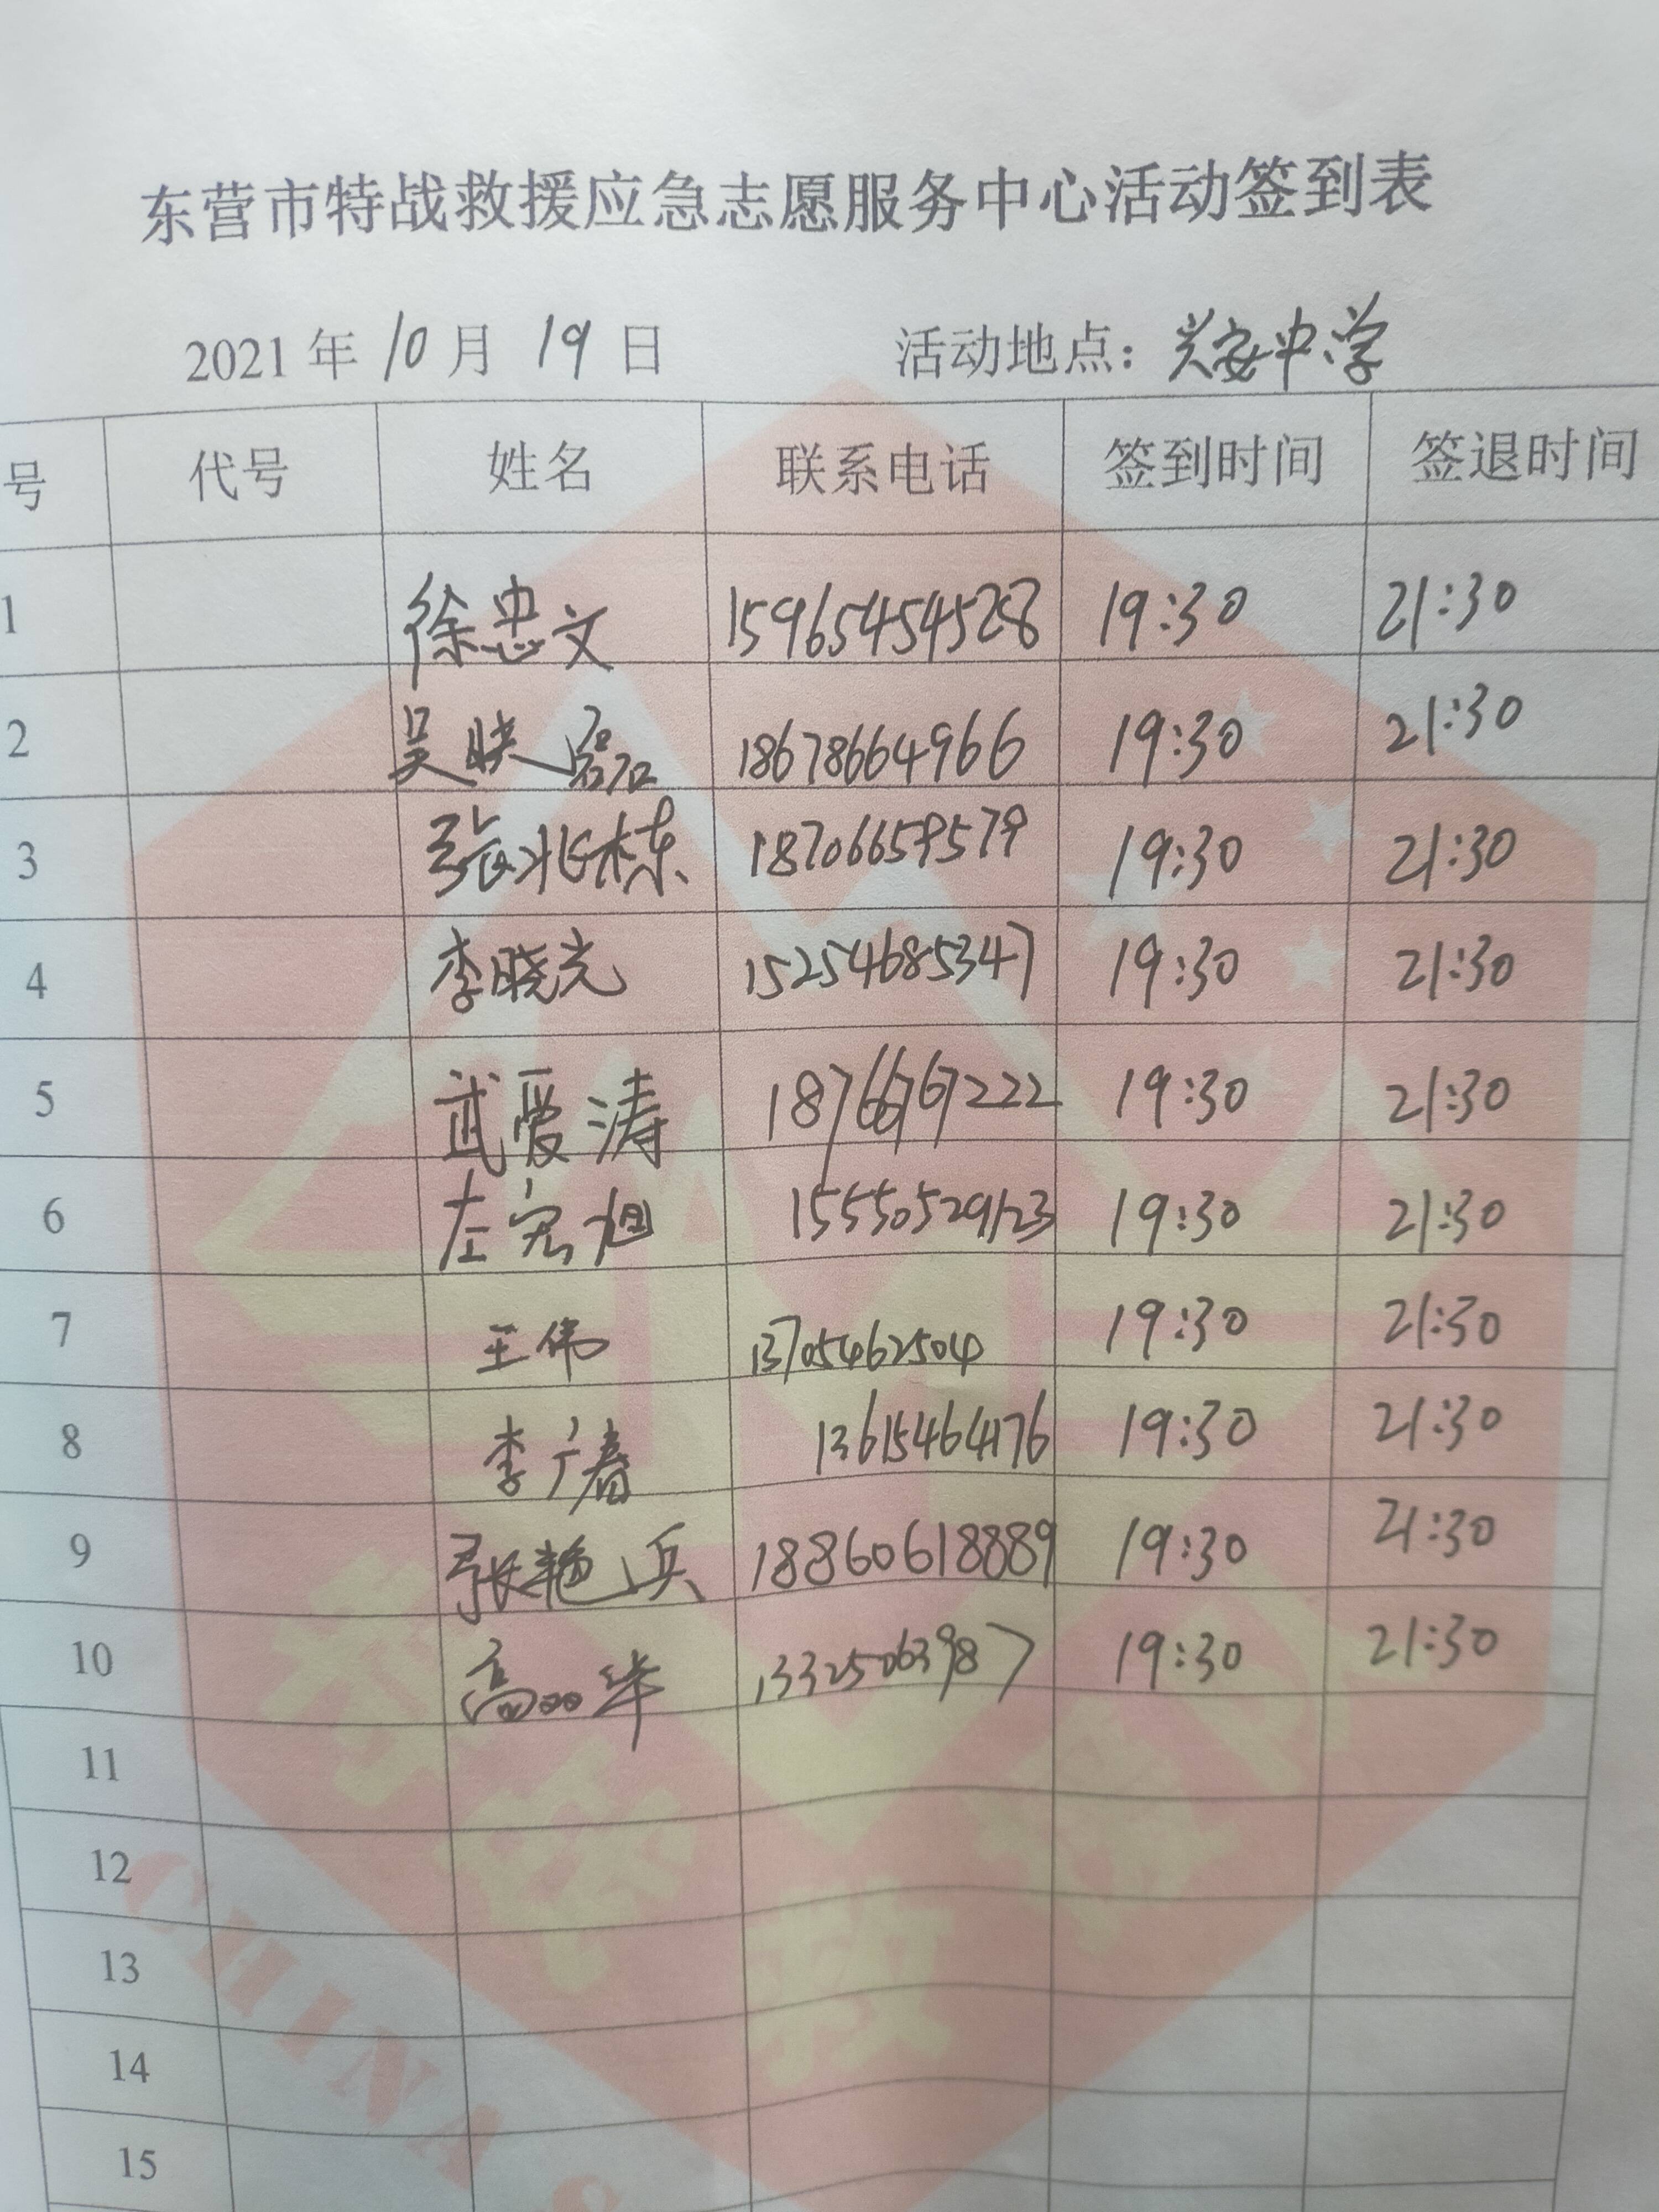 东营市特战救援应急志愿服务中心活动签到表
2021年10月19日 活动地点：兴安中学
号 代号 姓名 联系电话 签到时间 签退时间
1 徐忠文 15965454528 19:30 21:30
2 吴映磊 18678664966 19:30 21:30
3 张兆栋 18706659579 19:30 21:30
4 李晓光 15254685347 19:30 21:30
5 武爱涛 18766767222 19:30 21:30
6 左宏旭 15550529123 19:30 21:30
7 王伟 13705462504 19:30 21:30
8 李广春 13615464176 19:30 21:30
9 张艳兵 18860618889 19:30 21:30
10 高品华 13325063987 19:30 21:30
11
12
13
14
15
特战救援
CHINA S